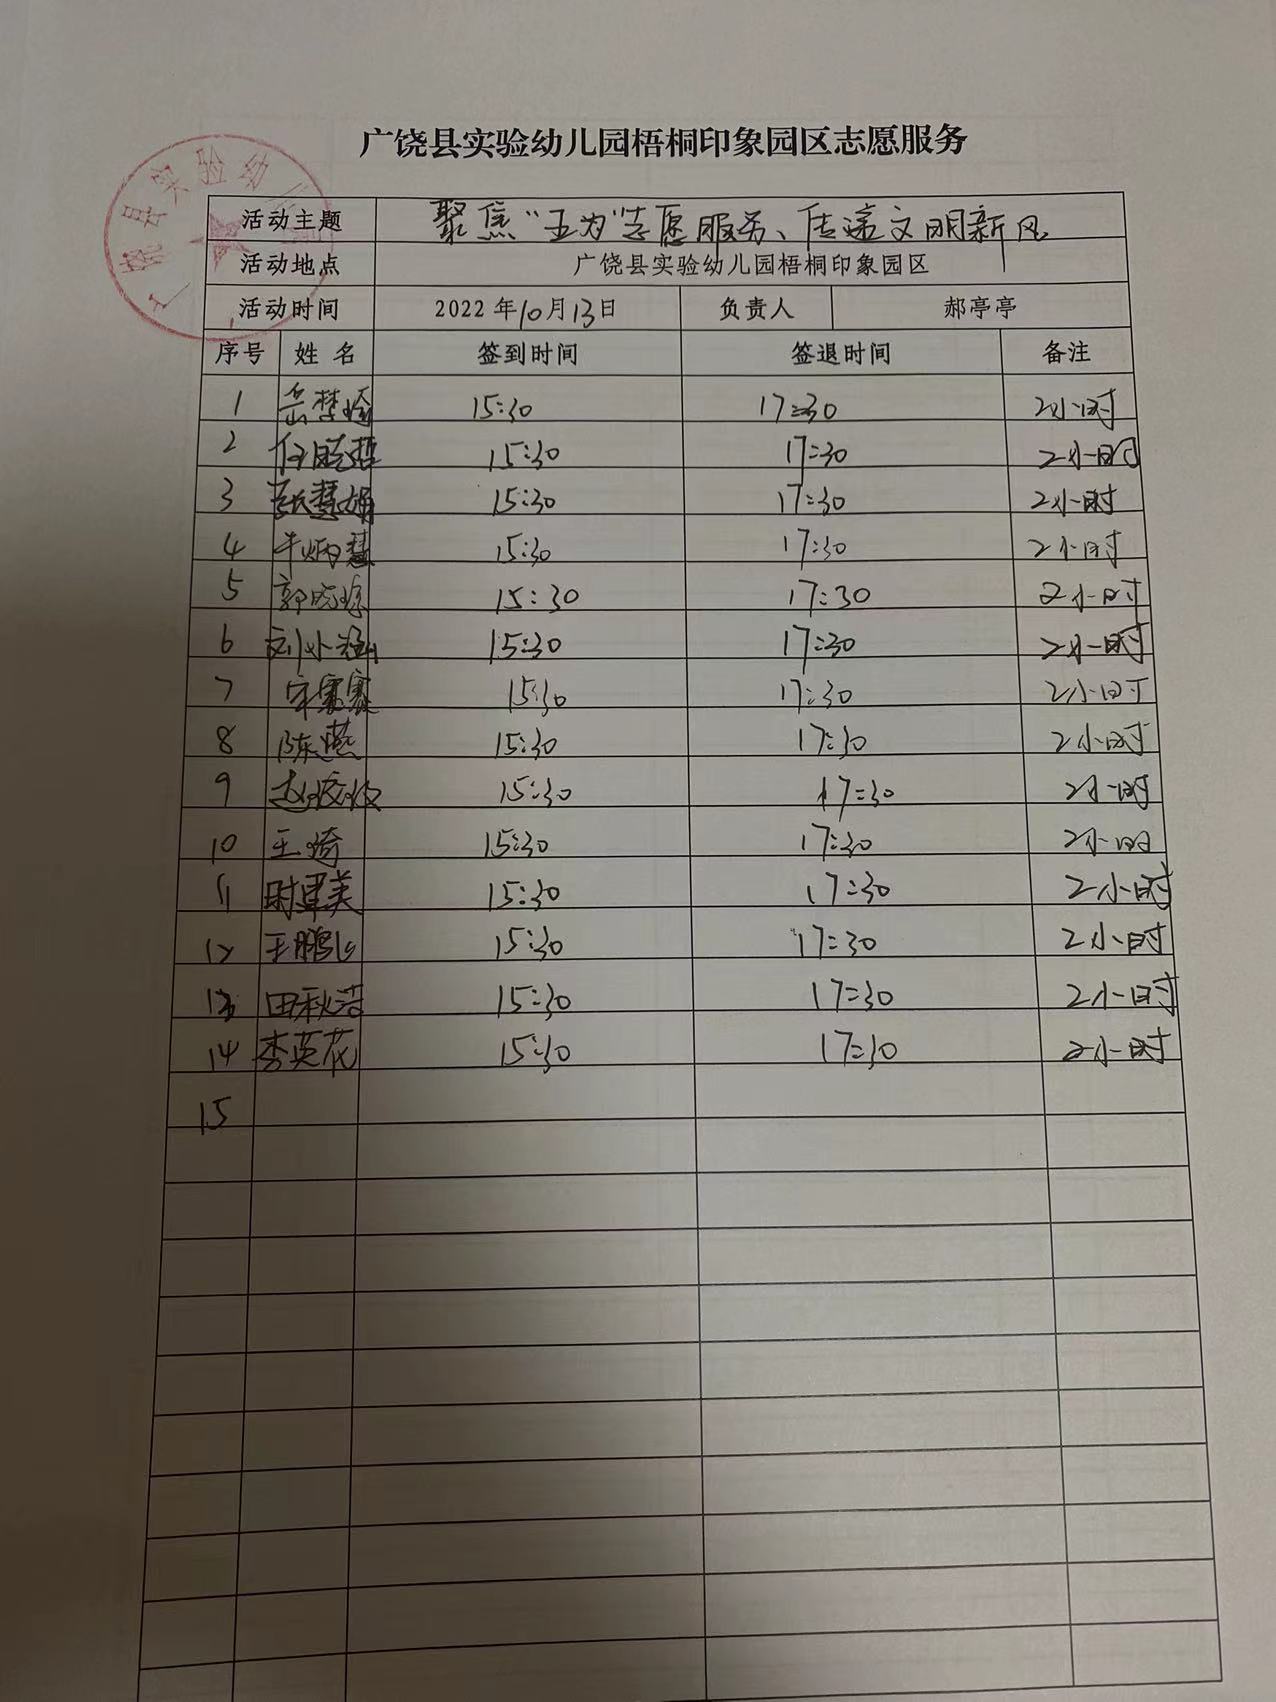 广饶县实验幼儿园梧桐印象园区志愿服务
广饶县实验幼儿
活动主题 聚焦“五为”志愿服务、传递文明新风
活动地点 广饶县实验幼儿园梧桐印象园区
活动时间 2022年10月13日 负责人 郝亭亭
序号 姓名 签到时间 签退时间 备注
1 岳梦 15:30 17:30 2小时
2 任晓 15:30 17:30 2小时
3 张慧娟 15:30 17:30 2小时
4 牛炳慧 15:30 17:30 2小时
5 郭晓 15:30 17:30 2小时
6 刘小 15:30 17:30 2小时
7 宋赛赛 15:30 17:30 2小时
8 陈燕 15:30 17:30 2小时
9 赵 15:30 17:30 2小时
10 王琦 15:30 17:30 2小时
11 美 15:30 17:30 2小时
12 王鹏飞 15:30 17:30 2小时
13 田秋洁 15:30 17:30 2小时
14 李英花 15:30 17:30 2小时
15